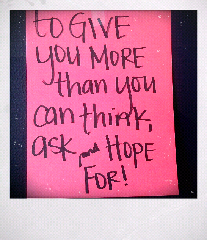 to GIVE
you MORE
than you
can think,
ask and HOPE
FOR!